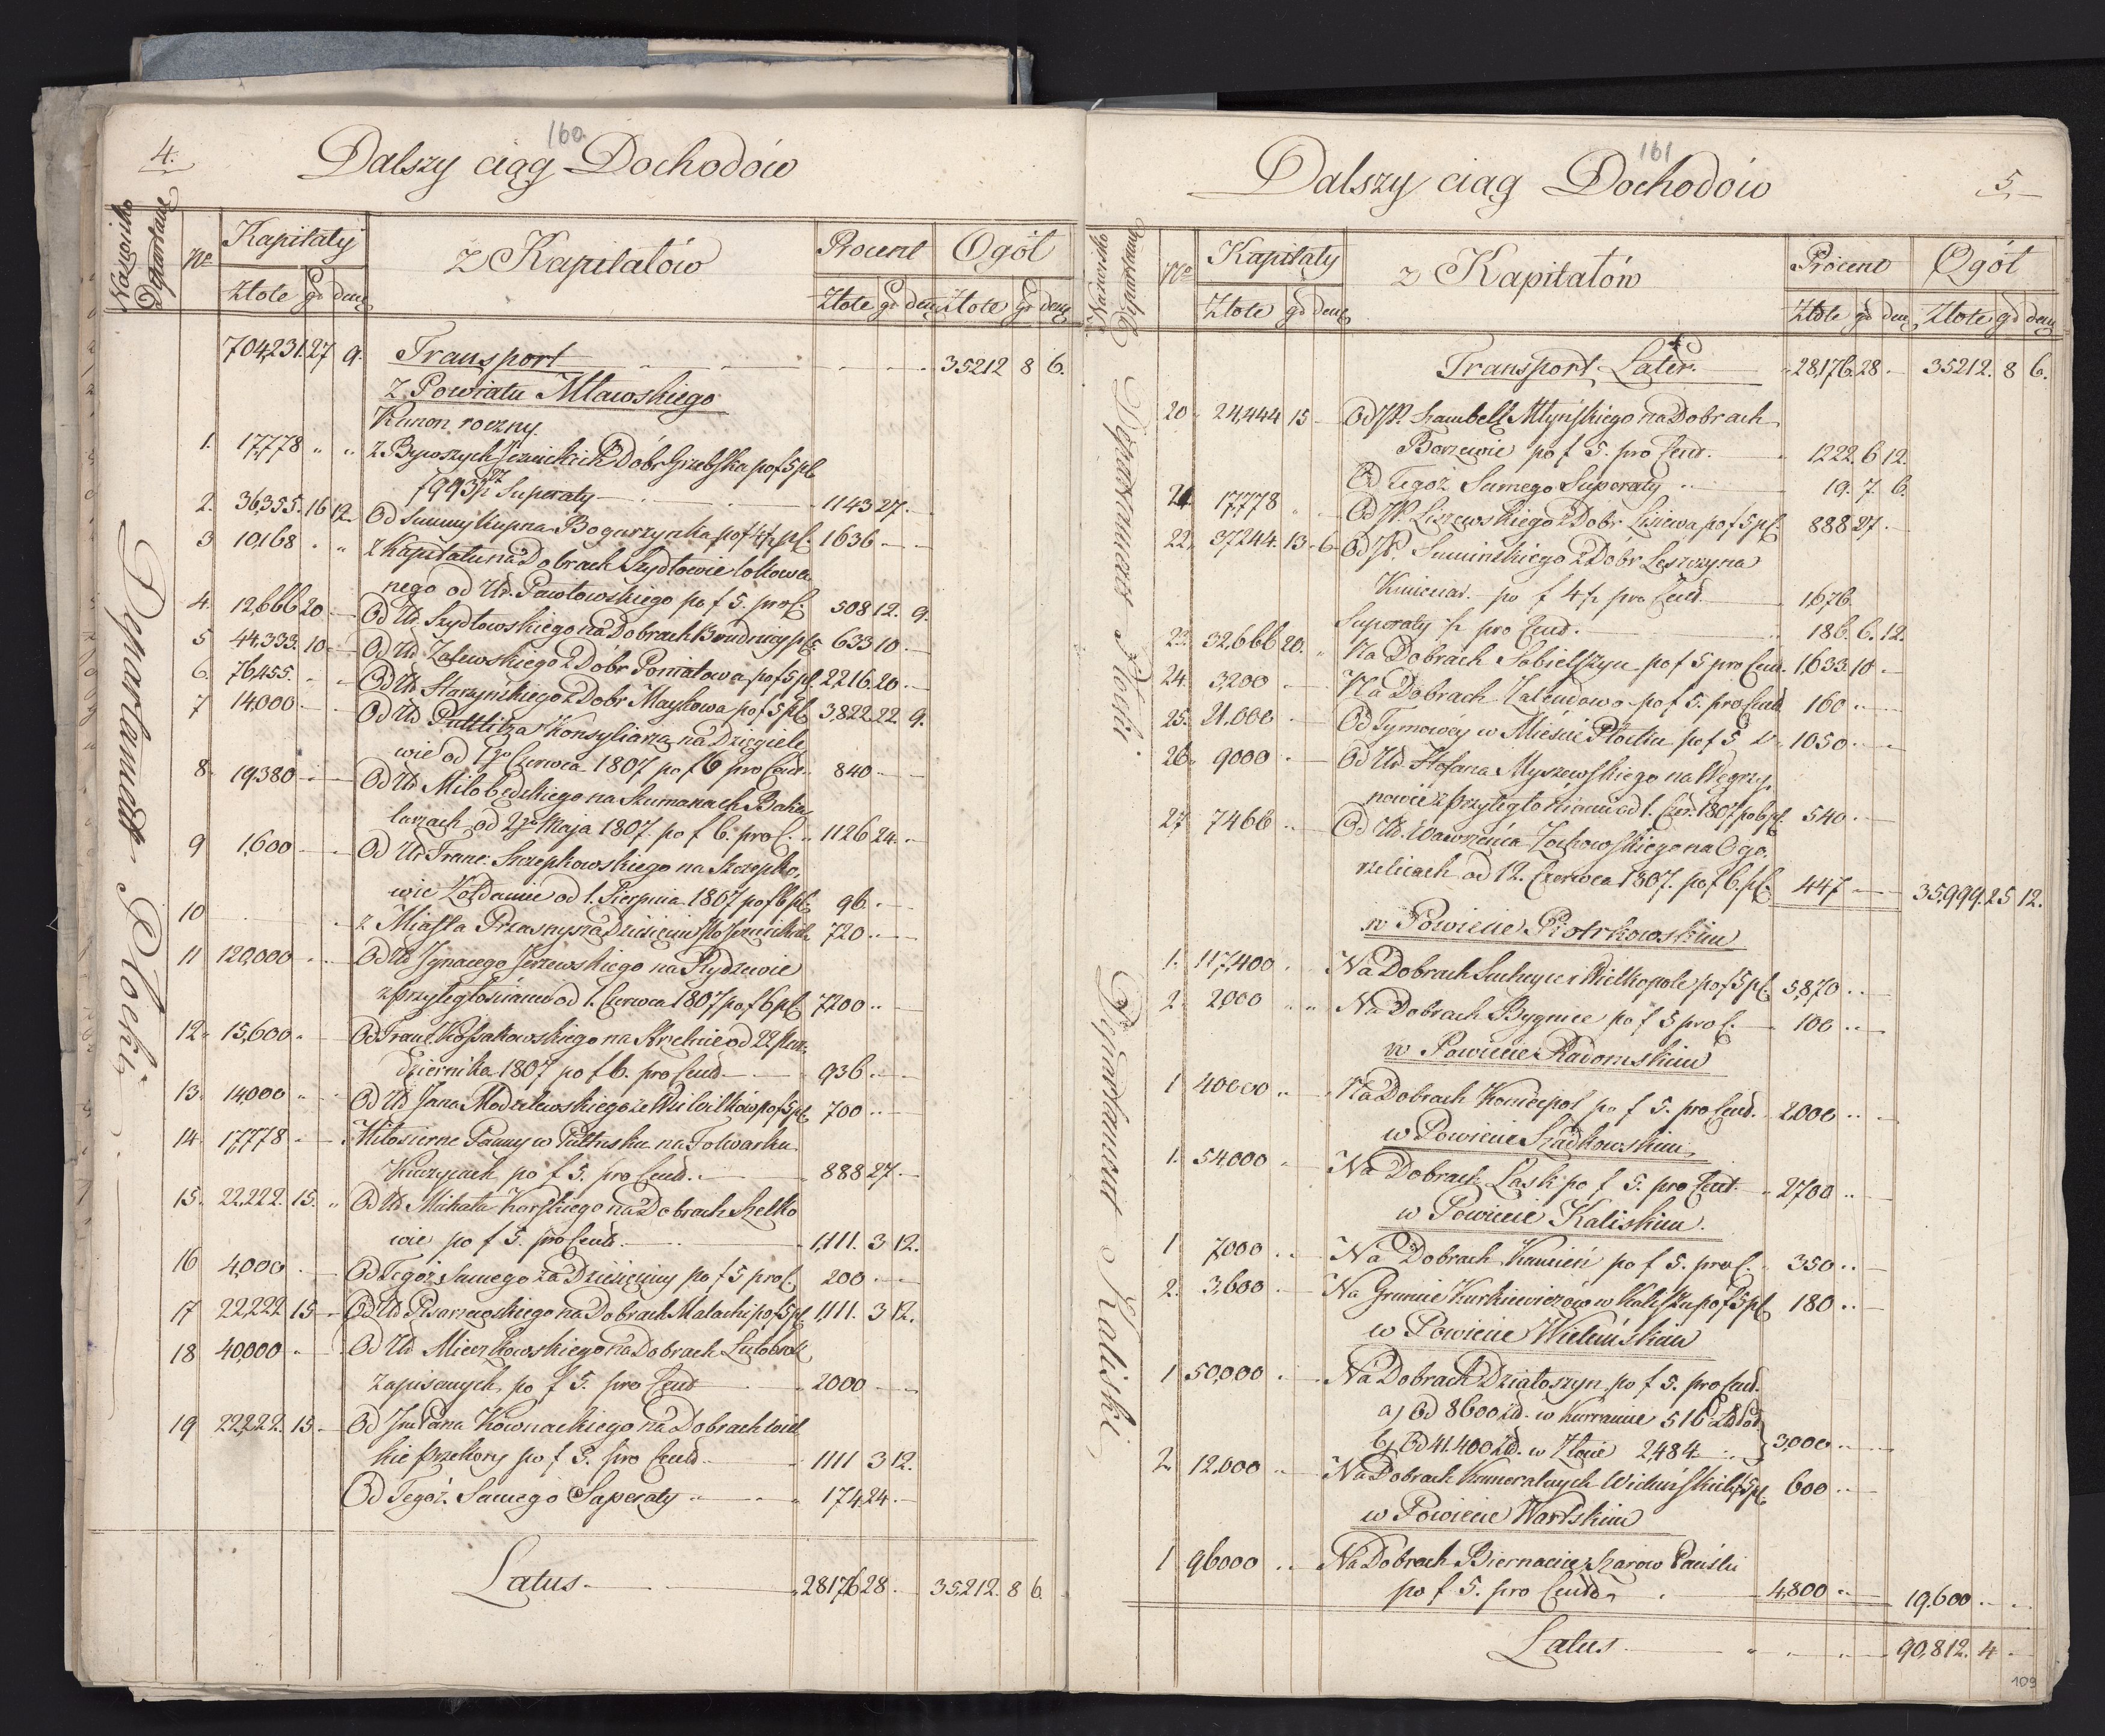 160.
4.
Dalszy ciąg Dochodów
Nazwisko Departame
No
Kapitały
z Kapitałów
Procent
Ogół
Złote gr den
Złote gr den
Złote gr den
Departament Płocki
704,231. 27 9. Transport 35212 8 6.
z Powiatu Mławskiego
Kanon roczny.
1. 17,778 " " z Bywszych Jezuickich Dóbr Grzebska po f 5 pC
Superaty 1143 27. —
2. 36,355. 16 12. Od Summy Kupna Bogurzynka po f 4½ pC. 1636 — —
3 10,168 . " z Kapitału na Dobrach Szydłowie lokowa
nego od Ur. Pawłowskiego po f 5. proC. 508 12. 9.
4. 12,666 20 — Od Ur. Szydłowskiego na Dobrach Budnicy pC. 633 10 —
5 44,333. 10 — Od Ur Zalewskiego z Dóbr Poniatowa po f 5 pC 2,216. 20. —
6. 76,455. . — Od Ur Starzyńskiego z Dobr Maykowa po f 5 pC 3,822. 22. 9.
7 14,000 — — Od Ur Puttlitza Konsyliarza na Dzięgiele
wie od 1go Czerwca 1807 po f 6 pro Cent 840 — —
8. 19,380 — — Od Ur Miłobędzkiego na Szumanach Baka
larzach od 2go Maja 1807. po f 6. proC. 1126 24. —
9 1,600 — — Od Ur Franc: Szczepkowskiego na Szczepko,
wie Zołdanie od 1. Sierpnia 1807 po f 6 pC 96. —
10 z Miasta Przasnysza Dziesięciny Po Jezuickich 720 .. —
11 120,000 . — Od Ur Jgnacego Jerzewskiego na Rydzewie
z przyległościami od 1. Czerwca 1807 po f 6 pC 7200 .. —
12. 15,600 . Od Franc. Kossakowskiego na Strzelnie od 22 Paz
dziernika 1807 po f 6. pro Cent 936 . —
13. 14,000 .. Od Ur Jana Modzelewskiego po f 5 pC. 700 .. —
14 17,778 . — Miłosierne Panny w Pułtusku na Folwarku
Kuzycach po f 5. pro Cent. 888 27. —
15. 22,222. 15. " Od Ur Michała Korskiego na Dobrach Szelko
wie po f 5. pro Cent. 1,111. 3 12.
16 4,000 . — Od Tegoż Samego za Dziesięciny po f 5 proC. 200 . —
17 22,222. 15 — Od Ur Pisarzewskiego na Dobrach Malachi po f 5 pC 1,111. 3 12.
18 40,000 . — Od Ur Mieczkowskiego na Dobrach Lutobrok
zapisanych po f 5. pro Cent 2000 — —
19 22,222. 15. — Od Jm Pana Kownackiego na Dobrach wiel
kie przetory po f 5. pro Cent 1111 3 12.
Od Tegoż Samego Superaty 174 24. —
Latus 28176 28 — 35,212. 8 6.
161
Dalszy ciąg Dochodów
5.
Nazwisko Departame
No
Kapitały
z Kapitałów
Procent
Ogół
Złote gr den
Złote gr den
Złote gr den
Departament Płocki.
Transport Later. 28,176. 28 — 35212. 8 6.
20 24,444 15 — Od JP. Szambell Młyńskiego na Dobrach
Borzewie po f 5. pro Cent. 1222. 6 12.
Od Tegoż Samego Superaty 19. 7 6.
21. 17,778 Od JP. Liszewskiego z Dobr Lisiewa po f 5 pC. 888 27 —
22. 37,244. 13 6 Od JP. Sumińskiego z Dóbr Leszczyna
po f 4½ pro Cent 1,676.
Superaty ½ pro Cent. 186. 6. 12.
23. 32,666 20. Na Dobrach Sobielszyn po f 5 pro Cent. 1,633. 10 —
24. 3,200 . — Na Dobrach Zalendowo po f 5. pro Cent 160 .. —
25. 21,000 . — Od Tymowey w Mieście Płocku po f 5 1050 . —
26. 9000 . — Od Ur. Stefana Myszewskiego na Węgrzy,
nowie z przyległościami od 1. Czer. 1807 po 6 pC. 540 . —
27 7466 .. — Od Ur. Wawrzeńca Zochowskiego na Ogo,
rzelicach od 12. Czerwca 1807. po f 6. pC. 447 — 35,999. 25 12.
Departament Kaliski
w Powiecie Piotrkowskim
1. 117,400 . Na Dobrach Suchcyce i Wielkopole po f 5 pC. 5,870 .. —
2. 2,000 " " Na Dobrach Bygnice po f 5 proC. 100 .. —
w Powiecie Radomskim
1 40000 .. Na Dobrach Koniecpol po f 5. pro Cent. 2,000 .. —
w Powiecie Szadkowskim
1. 54,000 . Na Dobrach Lask po f 5. pro Cent. 2,700 .. —
w Powiecie Kaliskim.
1 7,000 .. Na Dobrach Kamień po f 5. proC. 350 .. —
2. 3,600 . — Na Gruncie Kurkiewiczów w Kaliszu po f 5 pC 180 .. —
w Powiecie Wieluńskim
1 50,000 . — Na Dobrach Działoszyn po f 5. pro Cent.
a) Od 8600 Zd. w Kurrancie 516 Zd
b) Od 41.400 Zd. w Złocie 2,484 3,000 .. —
2. 12,000 .. — Na Dobrach Kameralnych Wieluńskich f 5 pC 600 .. —
w Powiecie Wartskim
1 96000 .. — Na Dobrach Biernacice, Szarow Pański
po f 5. pro Cento 4,800 .. — 19,600 . —
Latus 90,812. 4 —
109